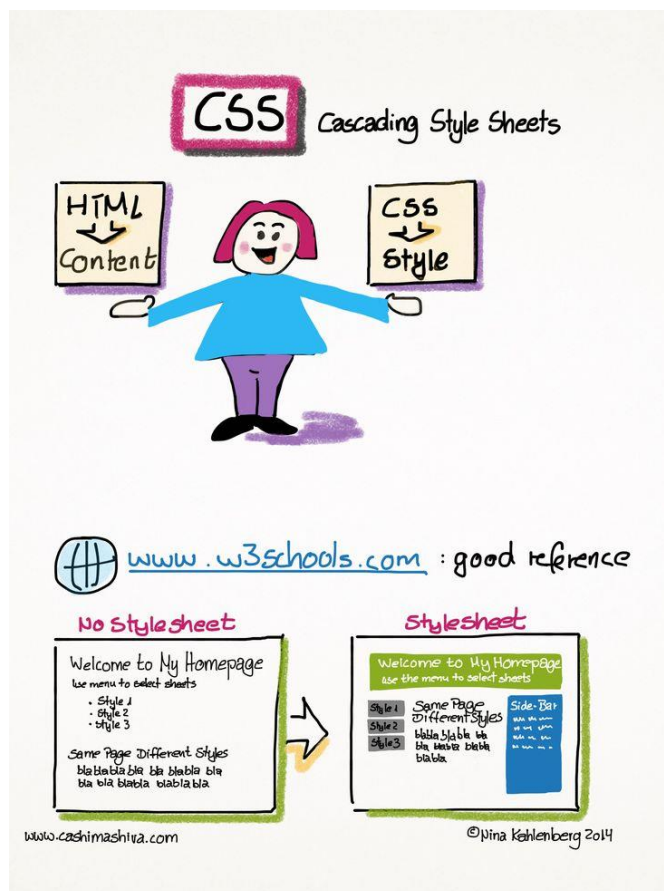 CSS Cascading Style Sheets
HTML
Content
CSS
Style
www.w3schools.com : good reference
No Stylesheet
Welcome to My Homepage
Use menu to select sheets
• Style 1
• Style 2
• Style 3
Same Page Different Styles
blablabla bla bla blabla bla
bla bla blabla blablabla
Stylesheet
Welcome to My Homepage
use the menu to select sheets
Style 1
Style 2
Style 3
Same Page
Different Styles
blabla blabla bla
bla blabla blabla
blabla
Side-Bar
www.cashimashiva.com
©Nina Kahlenberg 2014